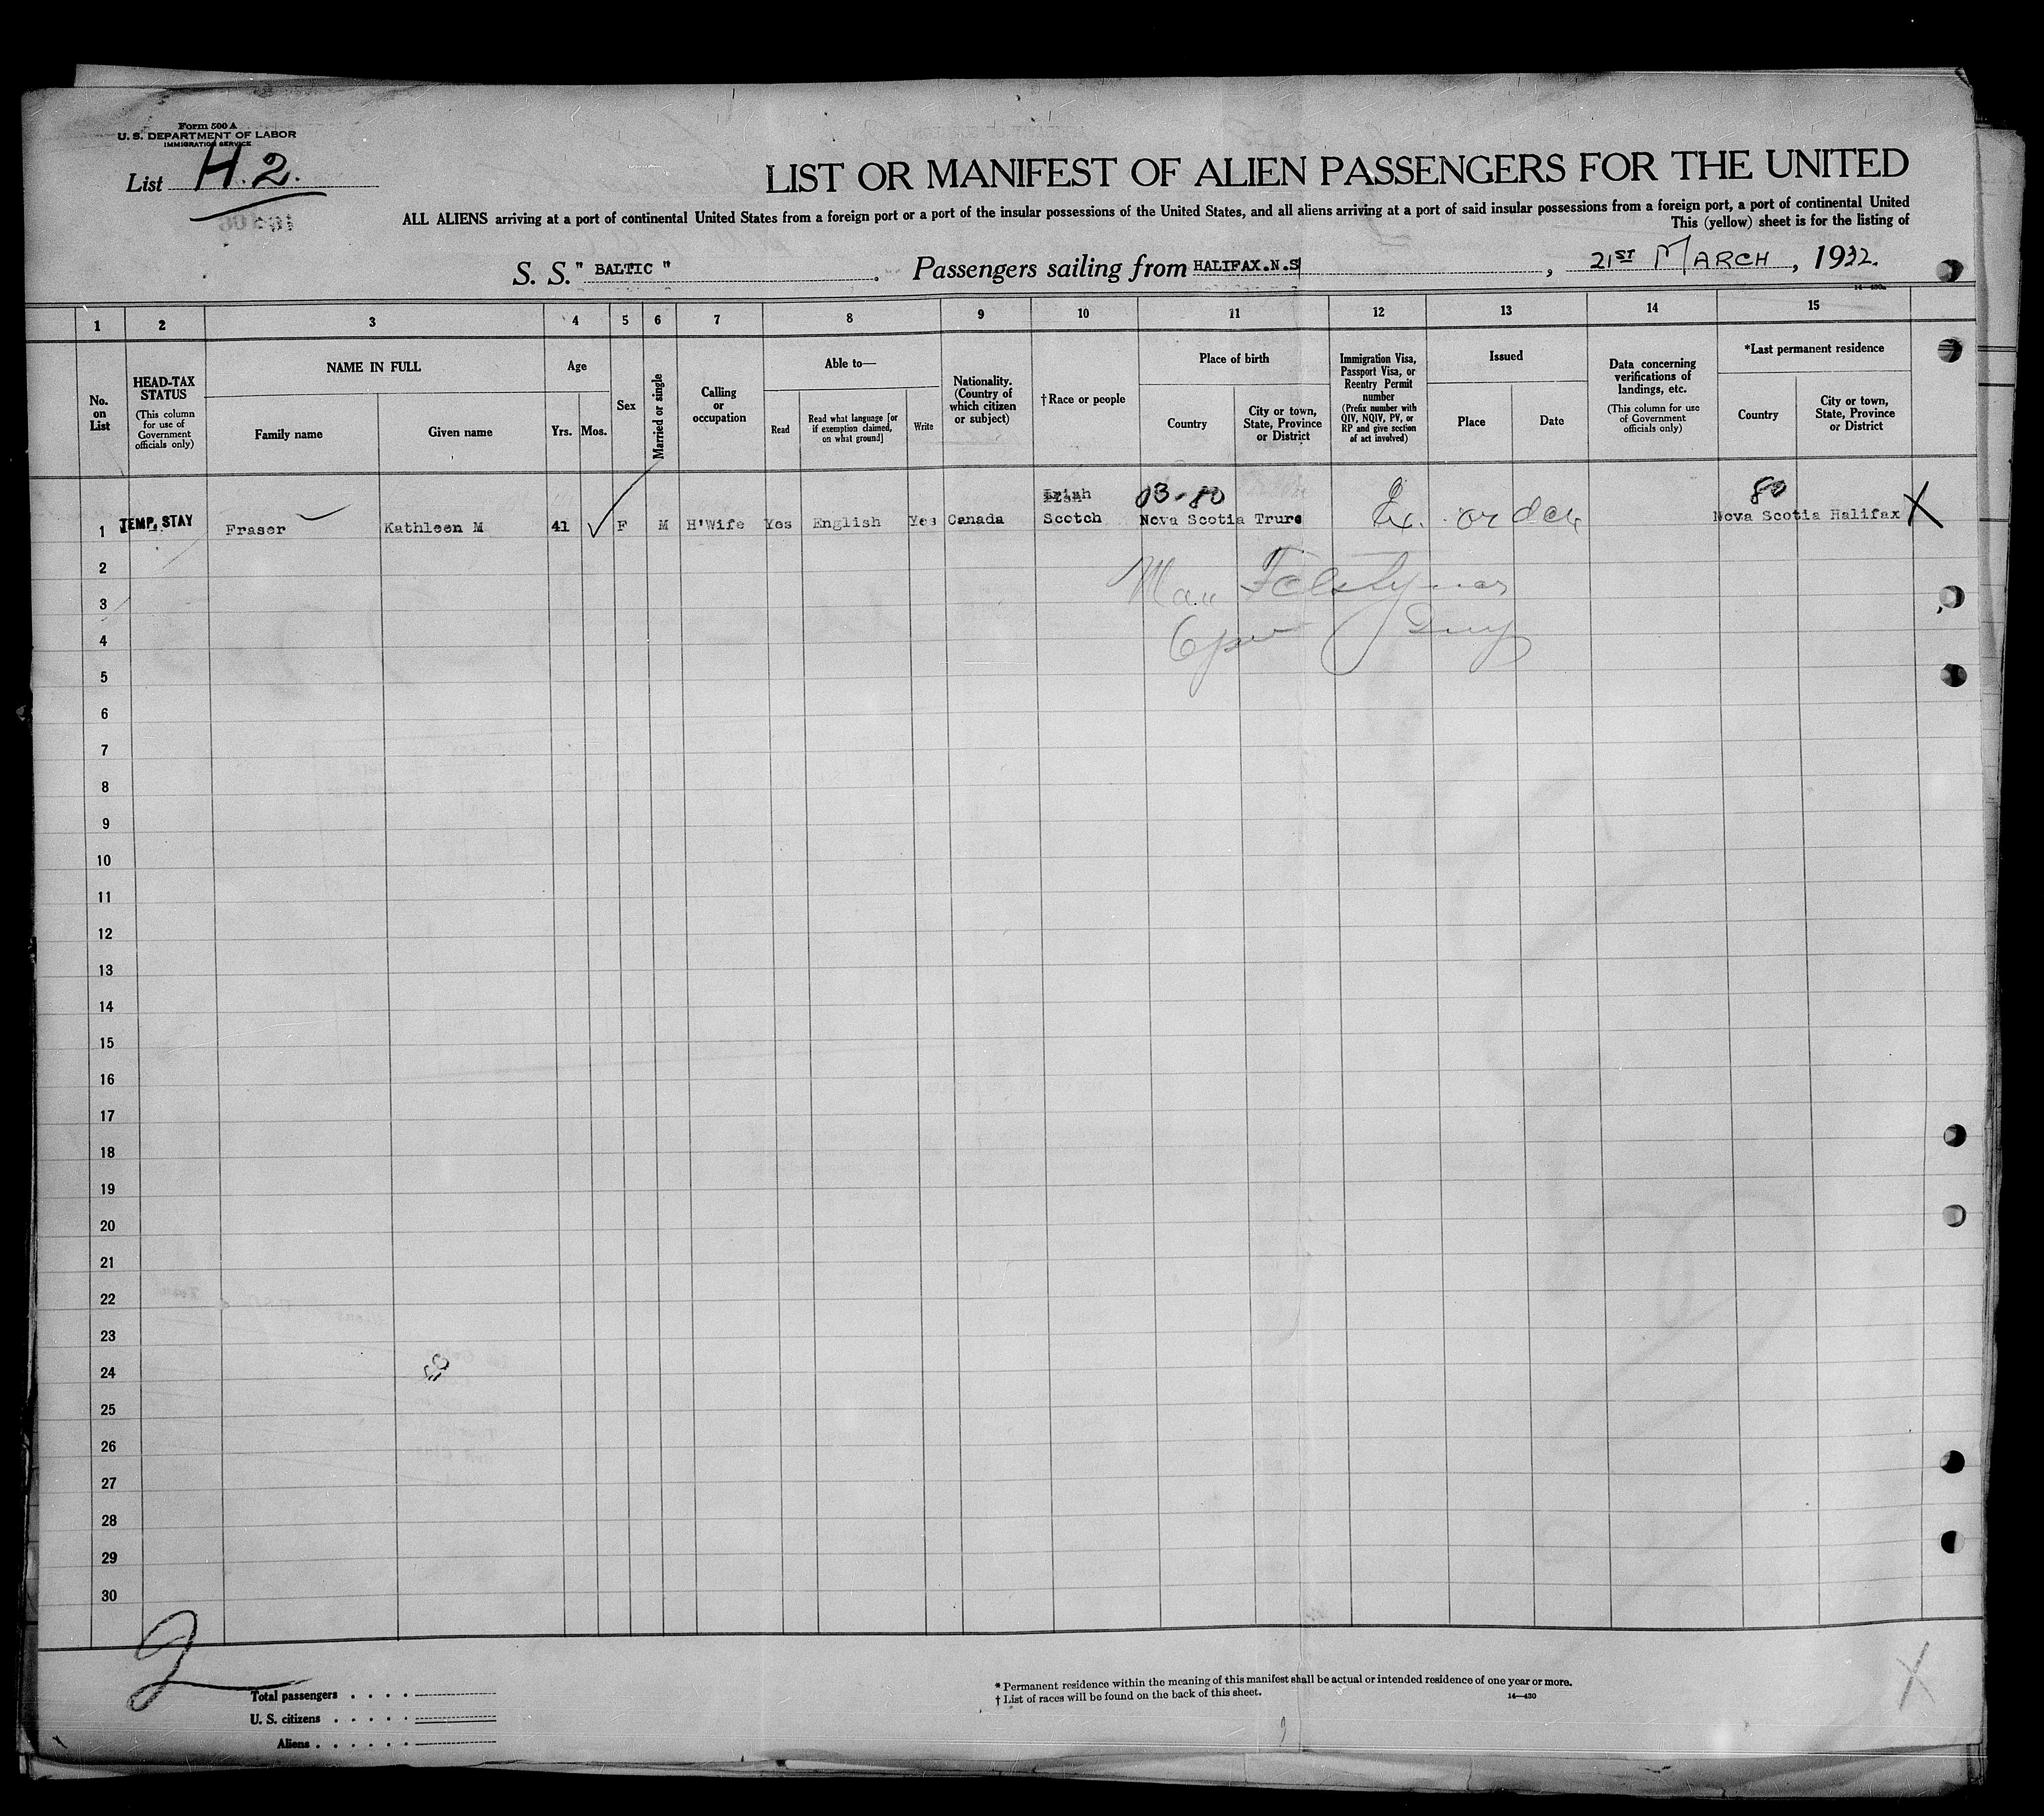 Form 500 A
U. S. DEPARTMENT OF LABOR
IMMIGRATION SERVICE
List H. 2.
LIST OR MANIFEST OF ALIEN PASSENGERS FOR THE UNITED
ALL ALIENS arriving at a port of continental United States from a foreign port or a port of the insular possessions of the United States, and all aliens arriving at a port of said insular possessions from a foreign port, a port of continental United
This (yellow) sheet is for the listing of
S. S. " BALTIC " . Passengers sailing from HALIFAX.N.S , 21ST MARCH , 1932.
14—430a
1 2 3 4 5 6 7 8 9 10 11 12 13 14 15
No. on List
HEAD-TAX STATUS
(This column for use of Government officials only)
NAME IN FULL
Family name
Given name
Age
Yrs. Mos.
Sex
Married or single
Calling or occupation
Able to—
Read
Read what language [or if exemption claimed, on what ground]
Write
Nationality. (Country of which citizen or subject)
†Race or people
Place of birth
Country
City or town, State, Province or District
Immigration Visa, Passport Visa, or Reentry Permit number
(Prefix number with QIV, NQIV, PV, or RP and give section of act involved)
Issued
Place
Date
Data concerning verifications of landings, etc.
(This column for use of Government officials only)
*Last permanent residence
Country
City or town, State, Province or District
Irish 03-80 80
1 TEMP. STAY Fraser Kathleen M 41 F M H'Wife Yes English Yes Canada Scotch Nova Scotia Truro Ex. order Nova Scotia Halifax X
2
3
4
5
6
7
8
9
10
11
12
13
14
15
16
17
18
19
20
21
22
23
24
25
26
27
28
29
30
2
Total passengers . . . .
U. S. citizens . . . . .
Aliens . . . . . .
* Permanent residence within the meaning of this manifest shall be actual or intended residence of one year or more.
† List of races will be found on the back of this sheet.
14—430
X